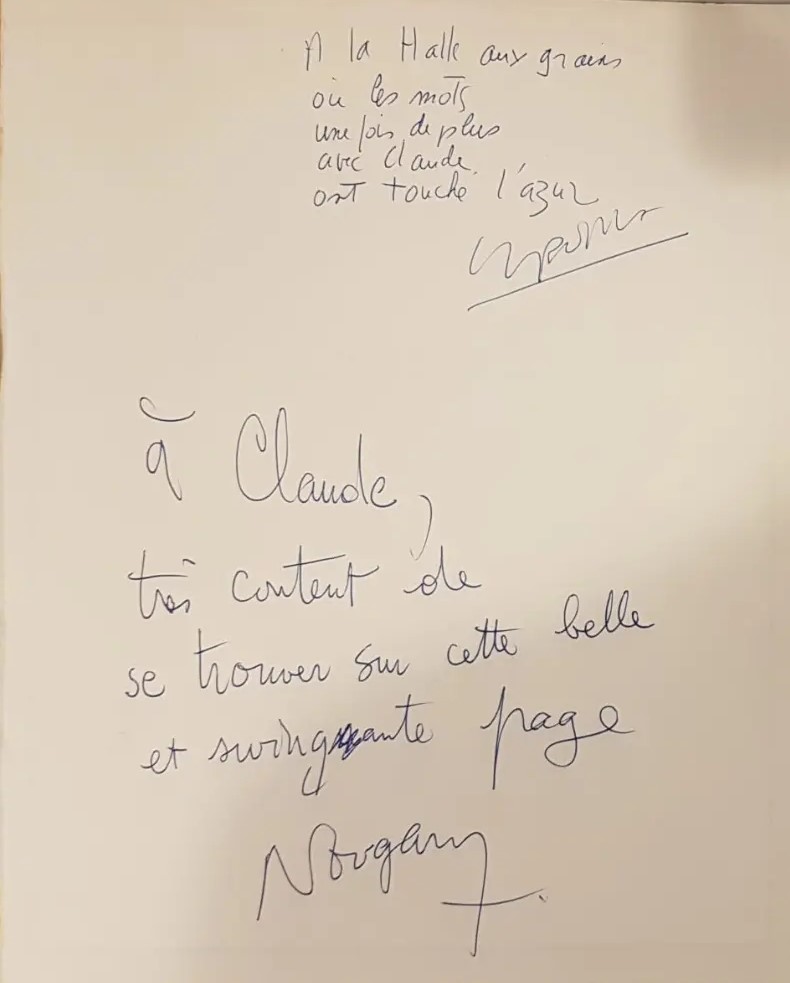 A la Halle aux grains
où les mots
une fois de plus
avec Claude
ont touché l'azur
à Claude,
très content de
se trouver sur cette belle
et swingante page
Nougaro